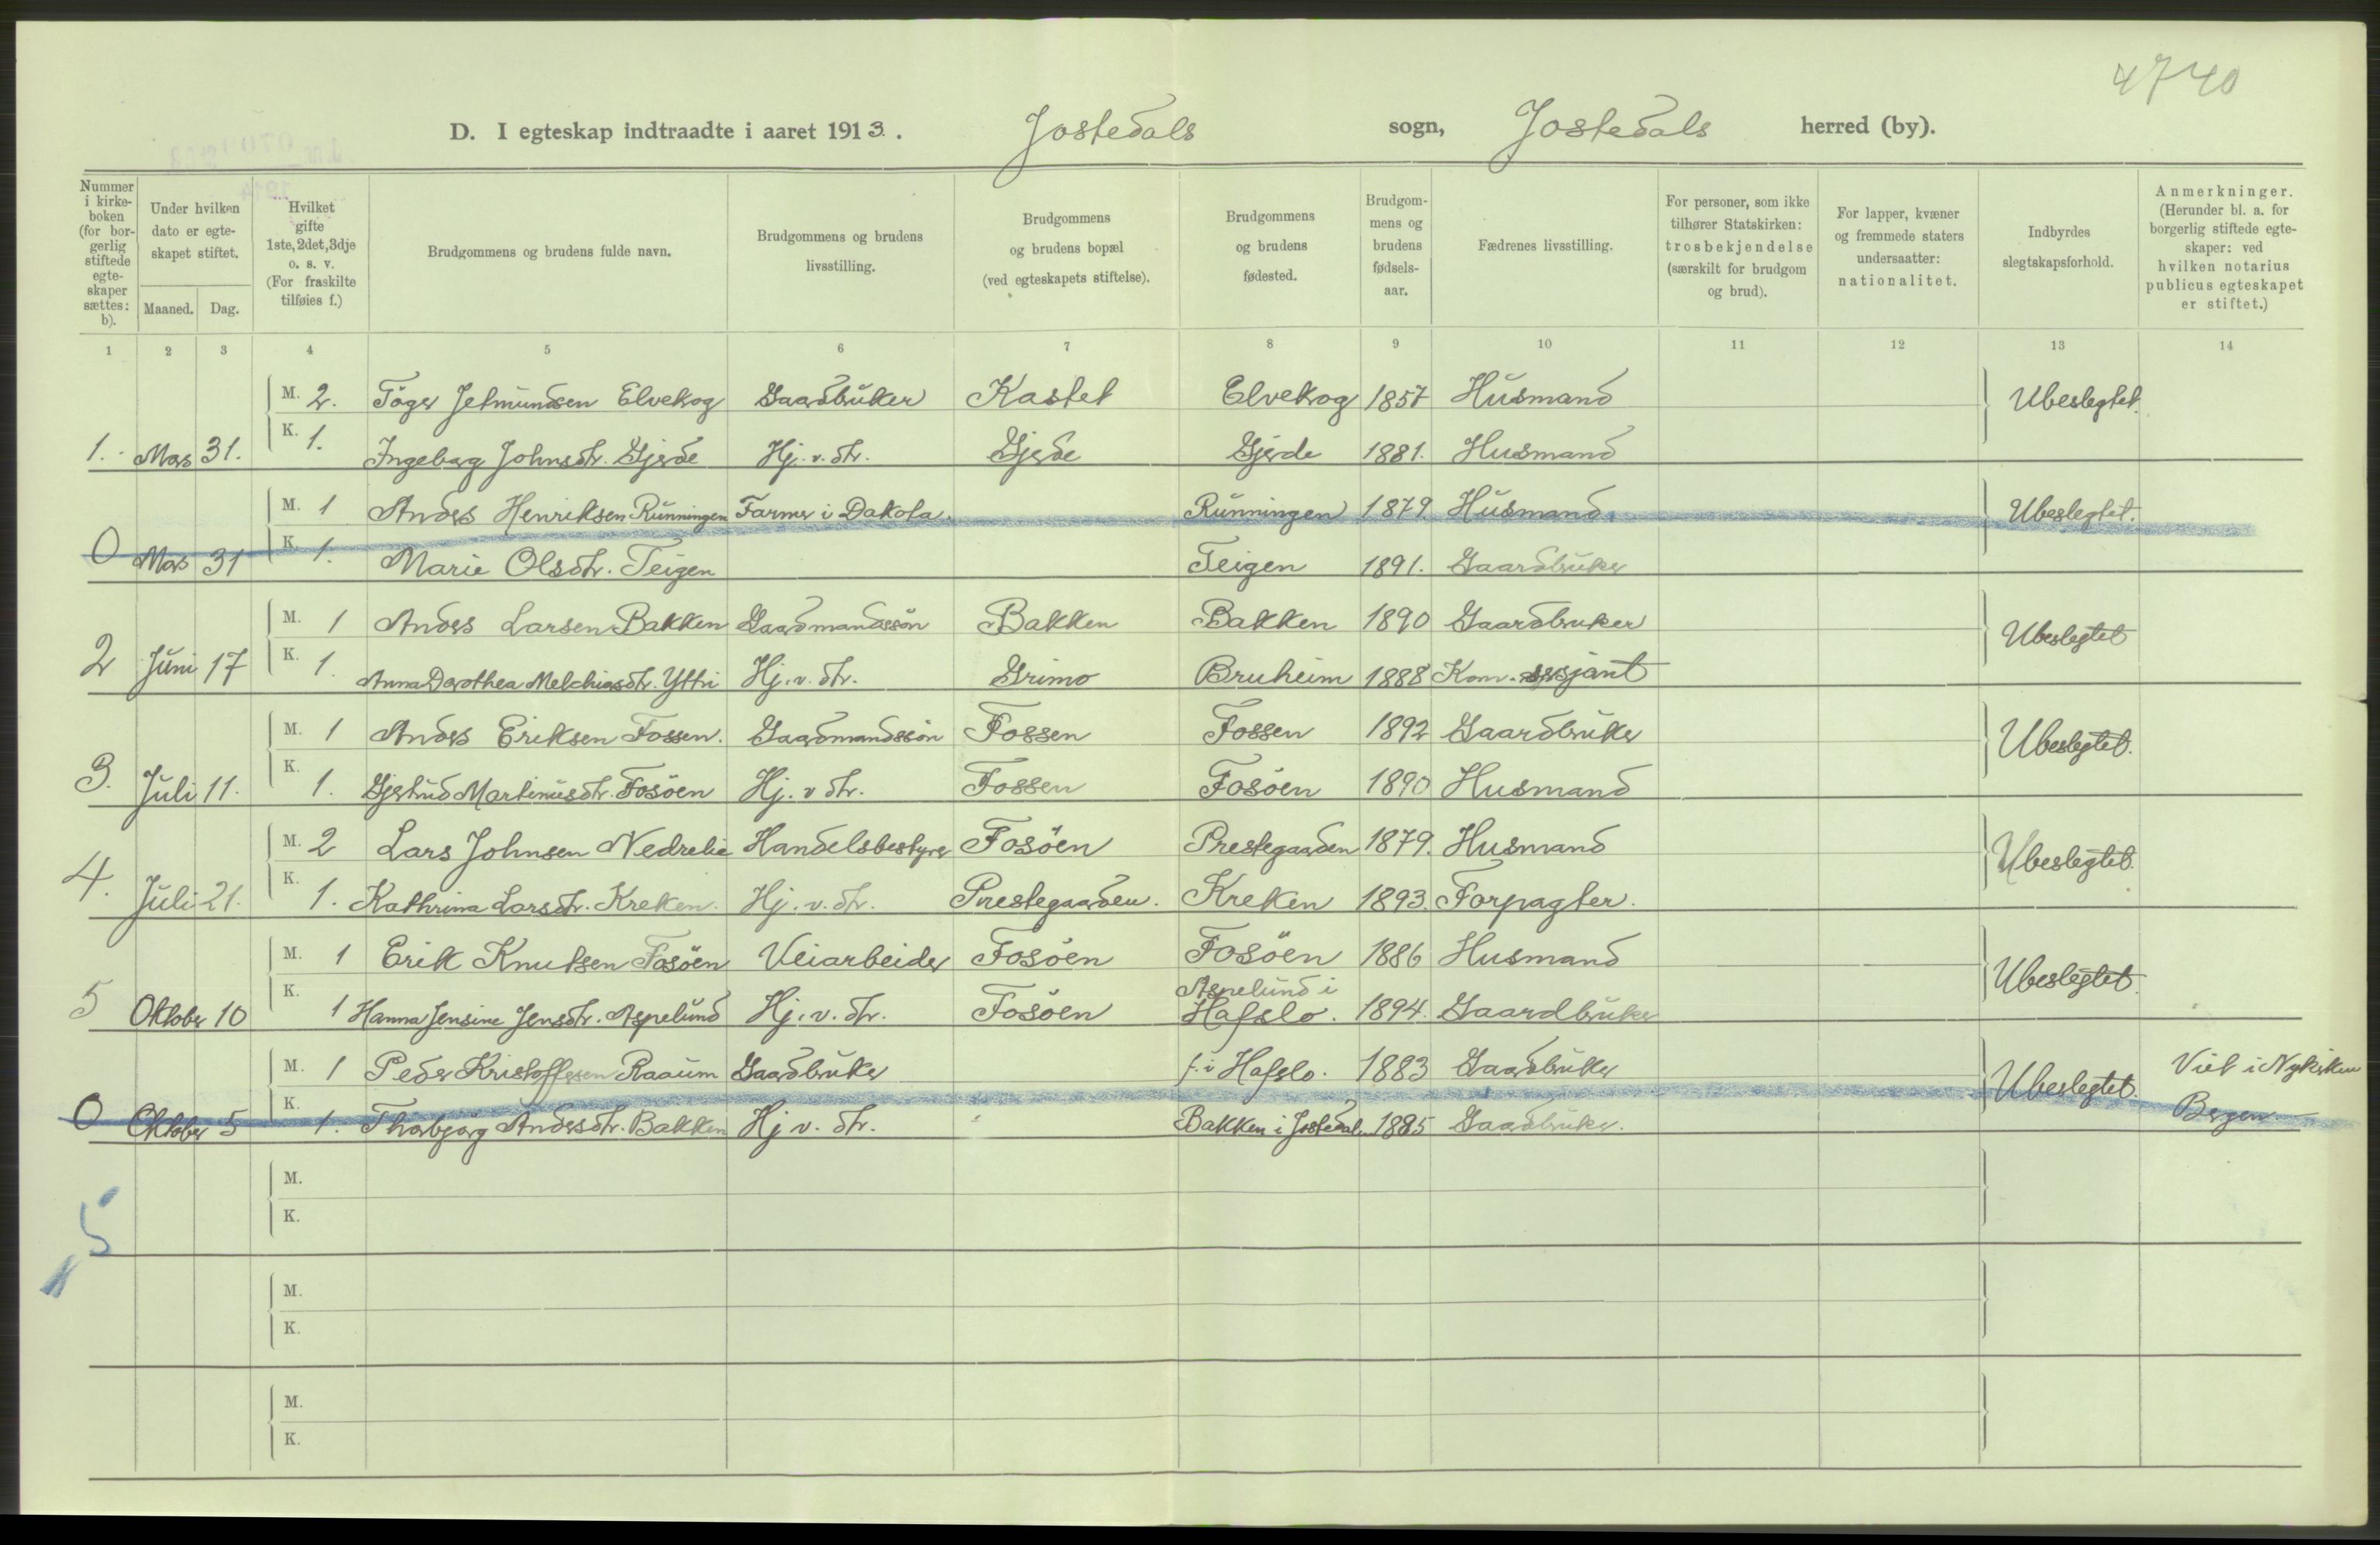 4740
D. I egteskap indtraadte i aaret 1913. Jostedals sogn, Jostedals herred (by).
Nummer i kirkeboken (for borgerlig stiftede egteskaper sættes: b).
Under hvilken dato er egteskapet stiftet.
Maaned. Dag.
Hvilket gifte 1ste, 2det, 3dje o. s. v. (For fraskilte tilføies f.)
Brudgommens og brudens fulde navn.
Brudgommens og brudens livsstilling.
Brudgommens og brudens bopæl (ved egteskapets stiftelse).
Brudgommens og brudens fødested.
Brudgommens og brudens fødselsaar.
Fædrenes livsstilling.
For personer, som ikke tilhører Statskirken: trosbekjendelse (særskilt for brudgom og brud).
For lapper, kvæner og fremmede staters undersaatter: nationalitet.
Indbyrdes slegtskapsforhold.
Anmerkninger. (Herunder bl. a. for borgerlig stiftede egteskaper: ved hvilken notarius publicus egteskapet er stiftet.)
1 2 3 4 5 6 7 8 9 10 11 12 13 14
M. 2. Töger Jetmundsen Elvekrog Gaardbruker Kastet Elvekrog 1857 Husmand Ubeslegtet.
1. Mars 31. K. 1. Ingeborg Johnsdtr. Gjerde Hj. v. dtr. Gjerde Gjerde 1881. Husmand
M. 1 Anders Henriksen Rünningen Farmer i Dakota. Rünningen 1879. Husmand Ubeslegtet.
0 Mars 31 K. 1. Marie Olsdtr. Teigen Teigen 1891. Gaardbruker
M. 1 Anders Larsen Bakken Gaardmandssön Bakken Bakken 1890 Gaardbruker Ubeslegtet
2 Juni 17 K. 1. Anna Dorothea Melchiorsdtr. Yttri Hj. v. dtr. Grimo Bruheim 1888 Kom. sersjant
M. 1 Anders Eriksen Fossen. Gaardmandssön Fossen Fossen 1892 Gaardbruker Ubeslegtet.
3. Juli 11. K. 1. Gjertrud Martinusdtr. Fosöen Hj. v dtr. Fossen Fosöen 1890 Husmand
M. 2 Lars Johnsen Nedrelie Handelsbestyrer Fosöen Prestegaarden 1879. Husmand Ubeslegtet.
4. Juli 21. K. 1. Kathrina Larsdtr. Kreken. Hj. v. dtr. Prestegaarden. Kreken 1893. Forpagter.
M. 1 Erik Knutsen Fosöen Veiarbeider Fosöen Fosöen 1886 Husmand Ubeslegtet.
5 Oktober 10 K. 1 Hanna Jensine Jensdtr. Aspelund Hj. v. dtr. Fosöen Aspelund i Hafslo. 1894. Gaardbruker
M. 1 Peder Kristoffersen Raaum Gaardbruker f. i Hafslo. 1883 Gaardbruker Ubeslegtet. Viet i Nykirken
0 Oktober 5 K. 1. Thorbjörg Andersdtr. Bakken Hj v. dtr. Bakken i Jostedal. 1885 Gaardbruker. Bergen
M.
K.
5
M.
K.
M.
K.